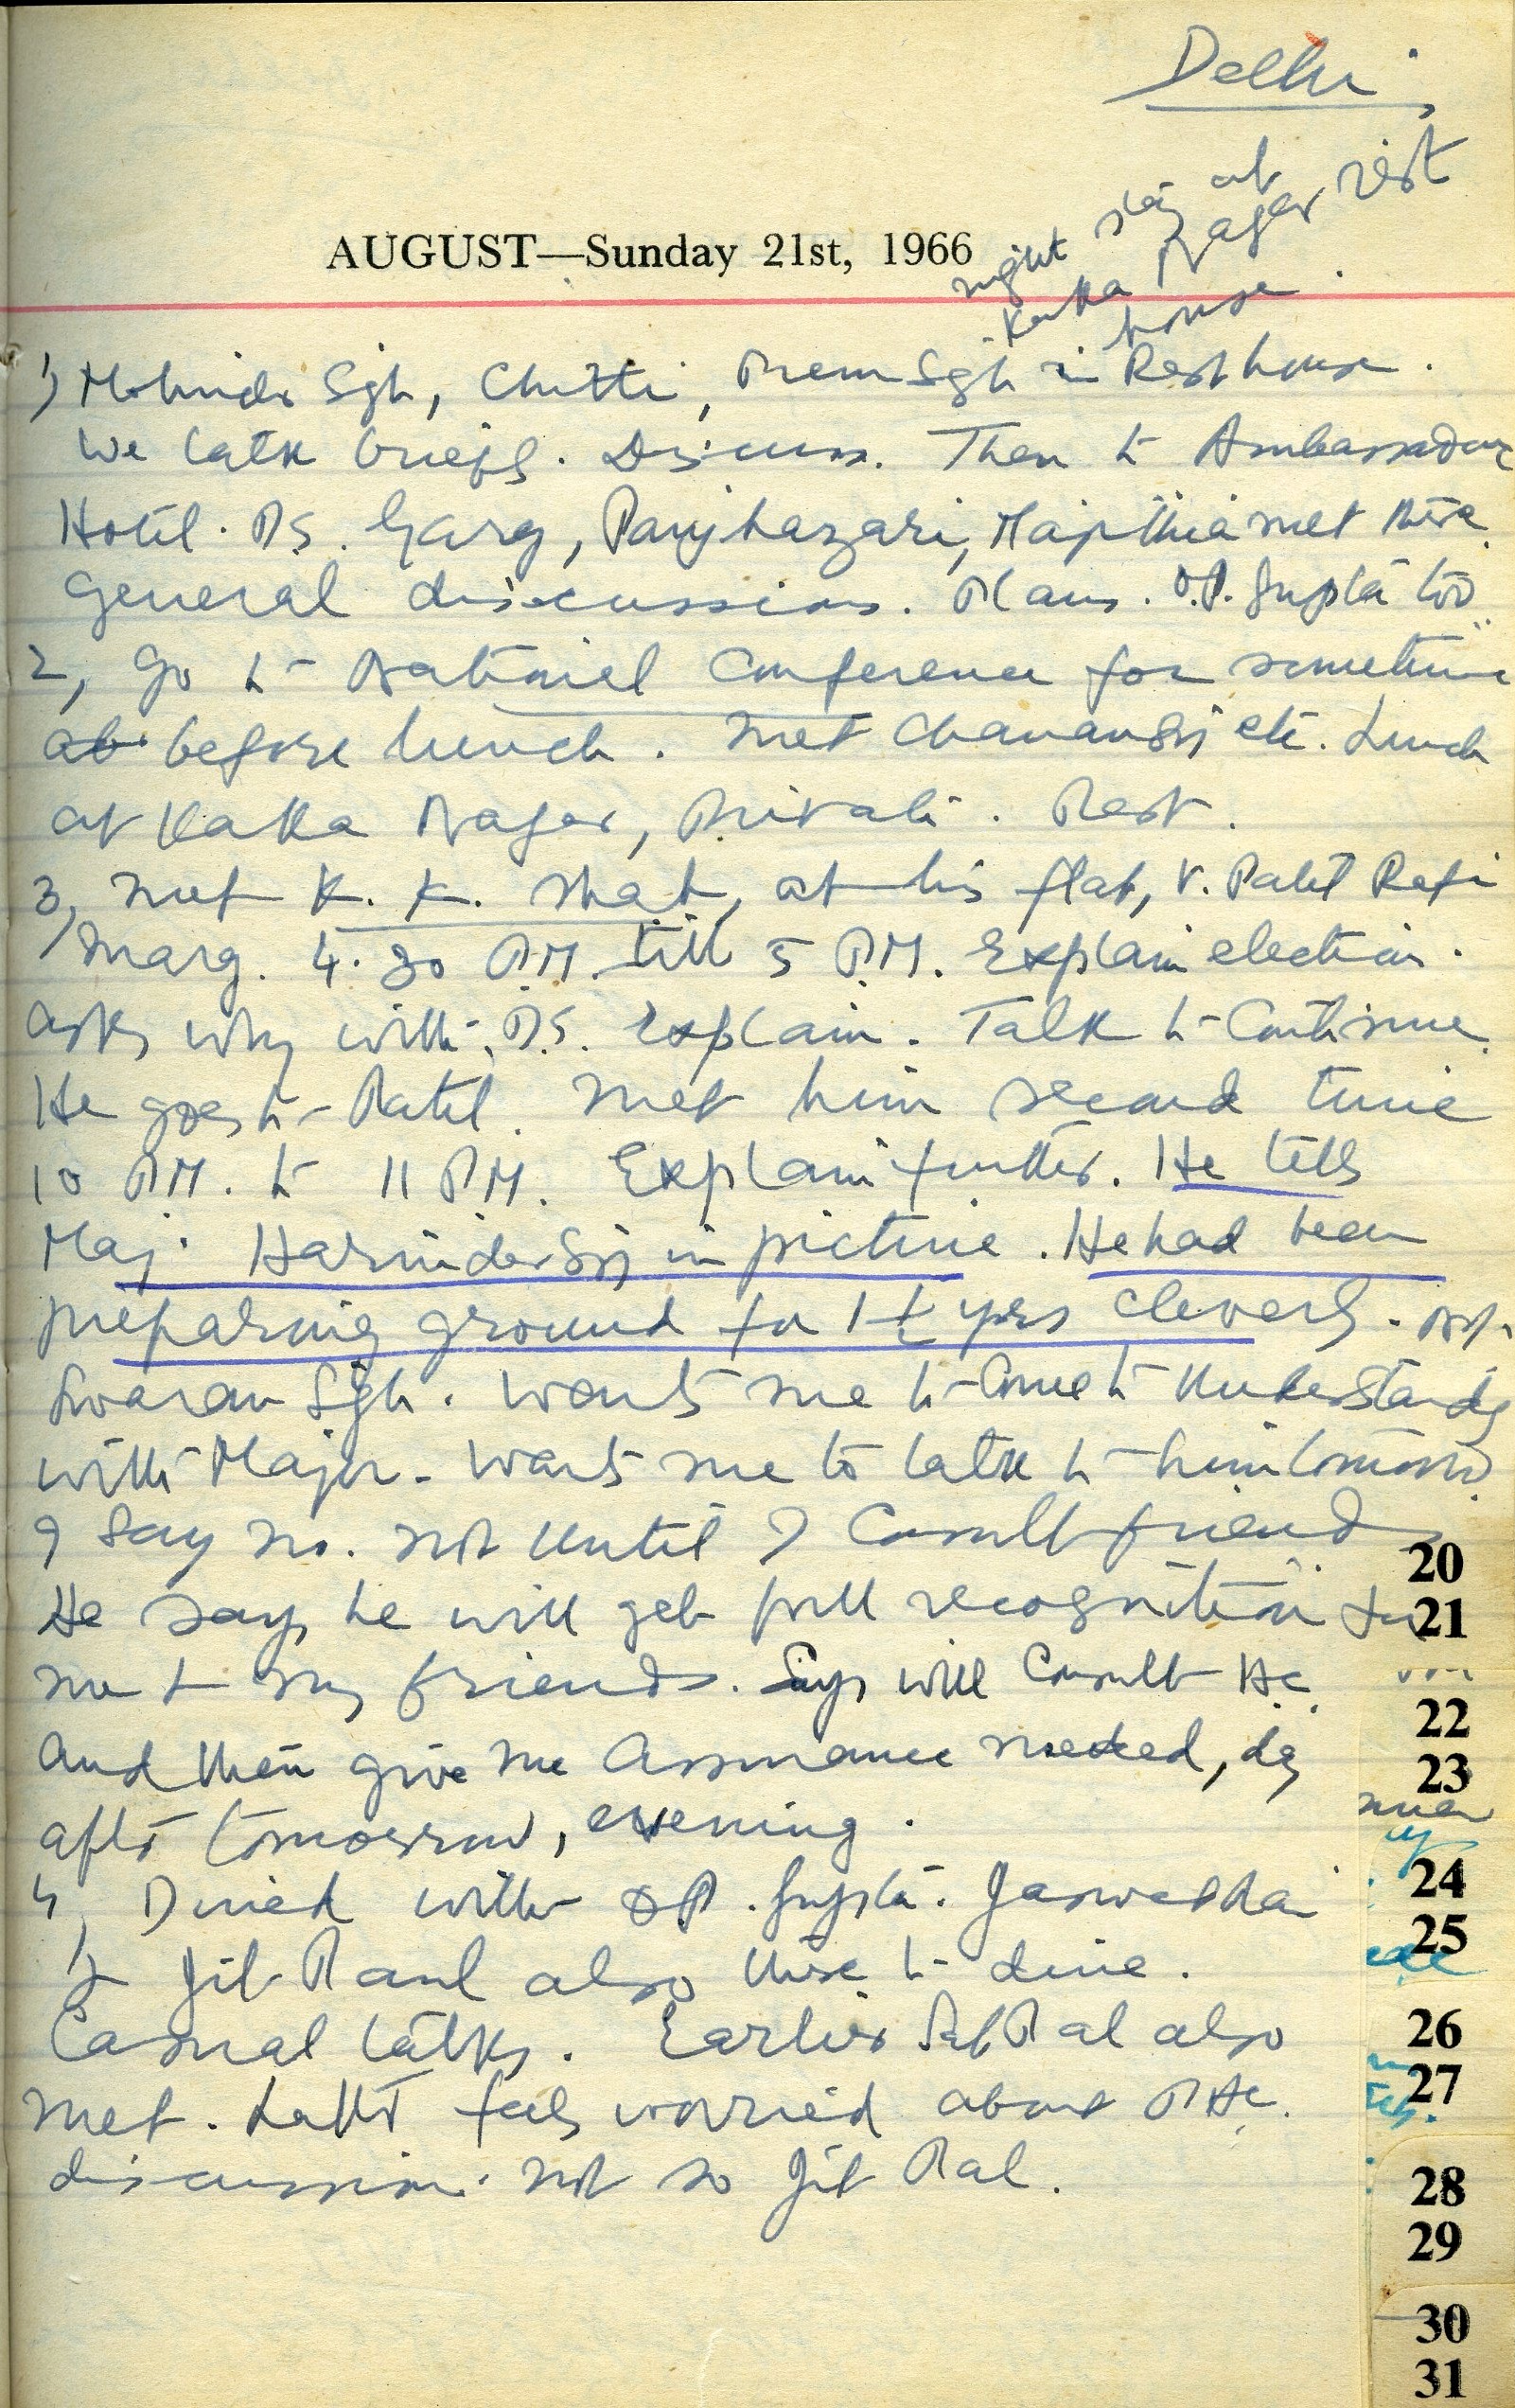 Delhi
night stay at
Kaka Nagar rest
house.
AUGUST—Sunday 21st, 1966
1) Mohinder Sgh, Chatti, Prem Sgh in Rest house.
We talk briefly. Discuss. Then to Ambassador
Hotel. P.S. Garg, Panjhazari, Majithia met there.
General discussions. Plans. O.P. Gupta too
2, Go to National Conference for sometime
before lunch. Met Chanan Sgh etc. Lunch
at Kaka Nagar, Privati. Rest.
3, Met K. K. Shah, at his flat, V. Patel Rafi
Marg. 4.30 P.M. till 5 P.M. Explain election.
Asks why with P.S. Explain. Talk to continue.
He goes to Patel. Met him second time
10 P.M. to 11 P.M. Explain further. He tells
Maj. Harinder Sgh in picture. He had been
preparing ground for 1½ yrs cleverly. Not
Swaran Sgh. Wants me to come to understandg
with Major. Wants me to talk to him tomorrow.
I say no. Not until I consult friends
He says he will get full recognition for
me & my friends. Says will consult H.C.
and then give me assurance needed, day
after tomorrow, evening.
4, Dined with O.P. Gupta. Jaswant Rai
& Jit Paul also there to dine.
Casual talks. Earlier Sat Pal also
met. Lakht feels worried about P.H.C.
discussion. Not so Jit Pal.
20
21
22
23
24
25
26
27
28
29
30
31